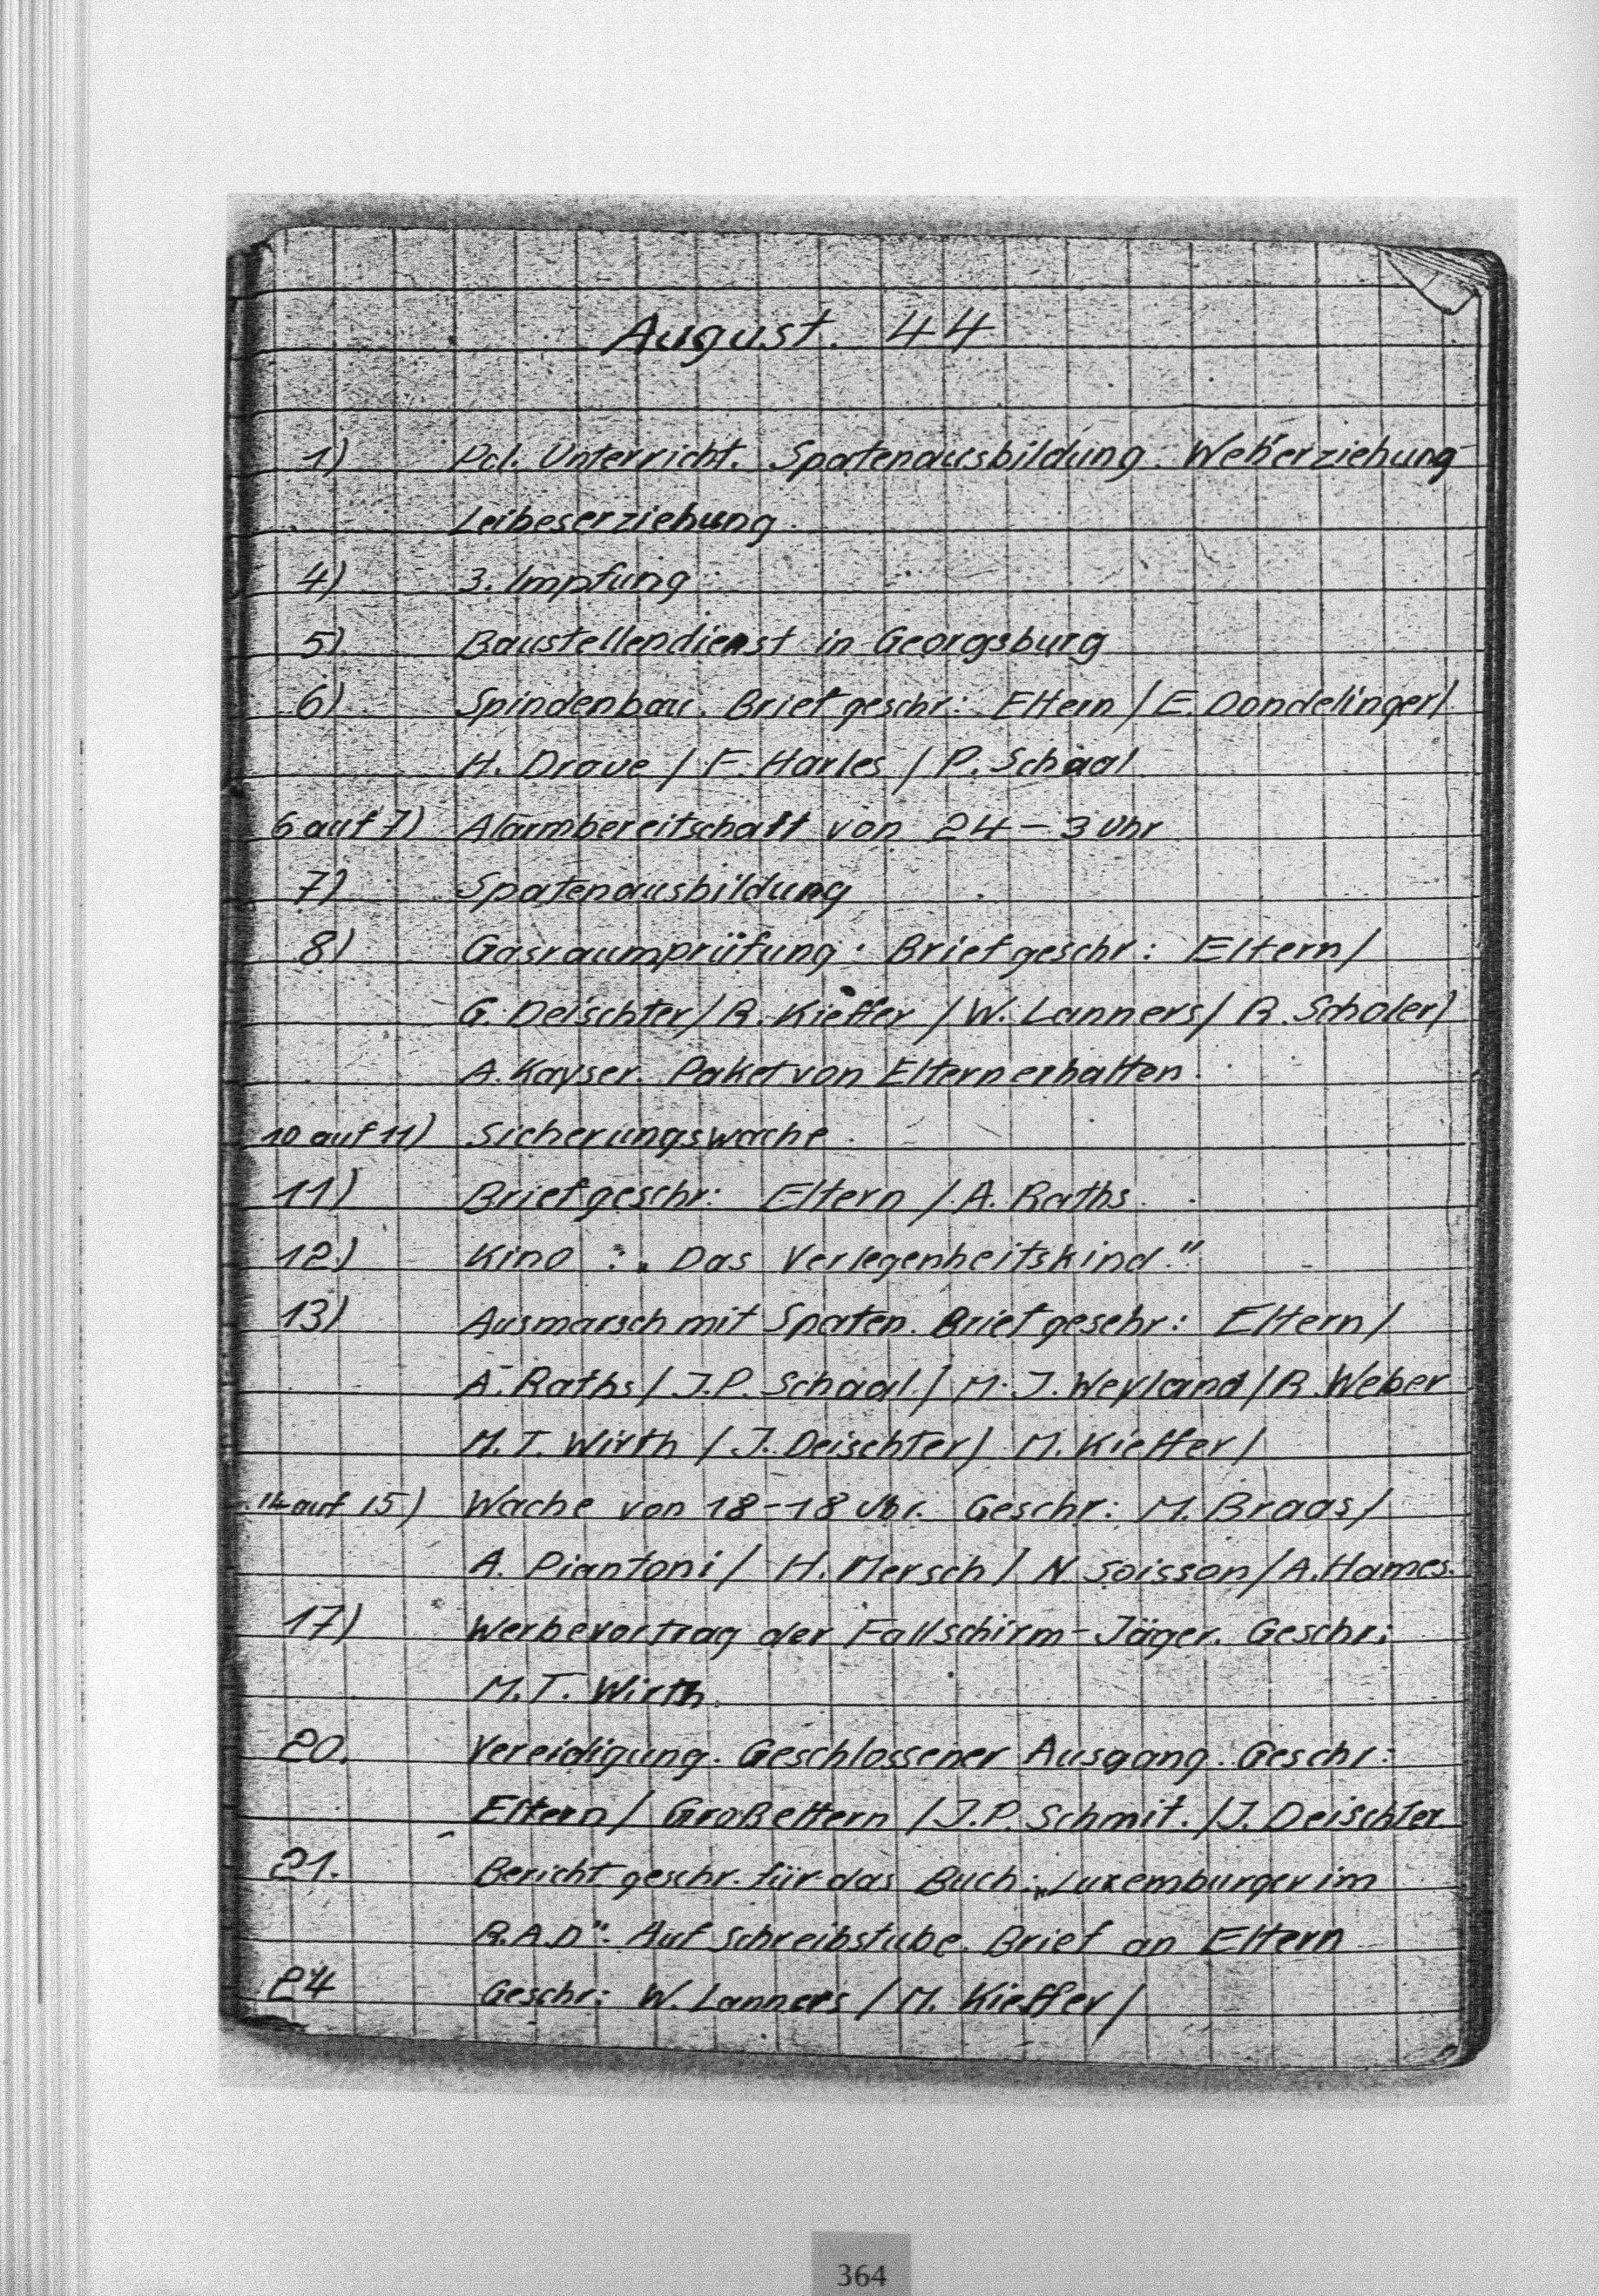 August. 44
1) Pol. Unterricht. Spatenausbildung. Wehrerziehung
Leibeserziehung
4) 3. Impfung
5) Baustellendienst in Georgsburg
6) Spindenbau. Brief geschr: Eltern / E. Dondelinger /
H. Drave / F. Harles / P. Schaal
6 auf 7) Alarmbereitschaft von 24 - 3 Uhr
7) Spatenausbildung
8) Gasraumprüfung. Brief geschr: Eltern /
G. Deischter / R. Kieffer / W. Lanners / R. Scholer /
A. Kayser. Paket von Eltern erhalten.
10 auf 11) Sicherungswache.
11) Brief geschr: Eltern / A. Raths.
12.) Kino : „Das Verlegenheitskind."
13) Ausmarsch mit Spaten. Brief geschr: Eltern /
A. Raths / J.P. Schaal / M. J. Weyland / R. Weber
M. T. Wirth / J. Deischter / M. Kieffer /
14 auf 15) Wache von 18-18 Uhr. Geschr: M. Braas /
A. Piantoni / H. Mersch / N. Soisson / A. Hames.
17) Werbevortrag der Fallschirm-Jäger. Geschr:
M.T. Wirth.
20. Vereidigung. Geschlossener Ausgang. Geschr:
Eltern / Großeltern / J.P. Schmit. / J. Deischter
21. Bericht geschr. für das Buch: „Luxemburger im
R.A.D". Auf Schreibstube. Brief an Eltern
24 Geschr: W. Lanners / M. Kieffer /
364